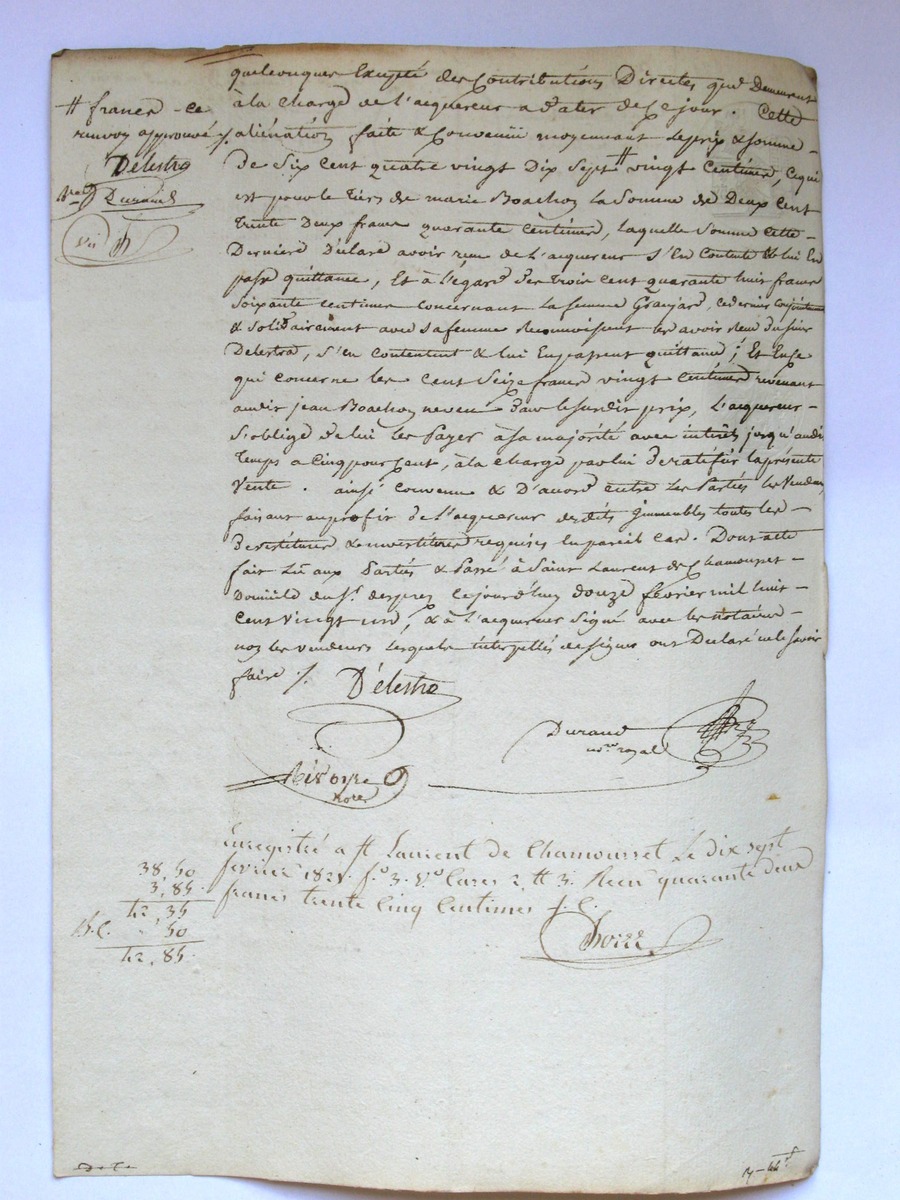 # francs - ce
renvoy approuvé /.
Délestra
Durand
quelconques Excepté des Contributions Directes qui Demeurent
à la charge de l'acquereur a dater de ce jour. Cette
aliénation faite & Convenüe moyennant le prix & somme -
de Six Cent quatre vingt Dix Sept # vingt Centimes, Ce qui
est pour le tiers de marie Boachon la Somme de Deux Cent
trente Deux francs quarante Centimes, laquelle Somme cette -
Derniere Déclare avoir reçu de l'acquereur s'En Contente & lui En
passe quittance, Et à L'égard des trois Cent quarante huit francs
Soixante Centimes Concernant la femme Granjard, ce dernier conjointement
& Solidairement avec sa femme Reconnoissent les avoir reçu du sieur
Delestra, s'en Contentent & lui En passent quittance ; Et En Ce
qui concerne les Cent Seize francs vingt Centimes revenant
audit jean Boachon neveu dans le susdit prix, L'acquereur -
S'oblige de lui les Payer à sa majorité avec intérêts jusqu'audit
Temps a Cinq pour Cent, à la charge par lui de ratifier la présente
Vente. ainsi Convenu & D'accord entre les Parties les Vendeurs
faisant au profit de L'acquereur desdits Immeubles toutes les -
Devestitures & investitures requises En pareil Cas. Dont acte
fait Lû aux Parties & Passé à Saint Laurent de Chamousset -
Domicile du Sr. desprez Cejourd'huy douze février mil huit
Cent Vingt un, & à L'acquereur Signé avec les notaires -
non les vendeurs Lesquels interpellés de Signer ont Déclaré ne le Savoir
faire /. Délestra
Durand
nre royal
Enregistré a St Laurent de Chamousset Le dix sept
fevrier 1821. fo 3. Vo Cases 2, # 3. Recu quarante deux
francs trente Cinq Centimes
38,50
3,85
42,35
,50
42,85